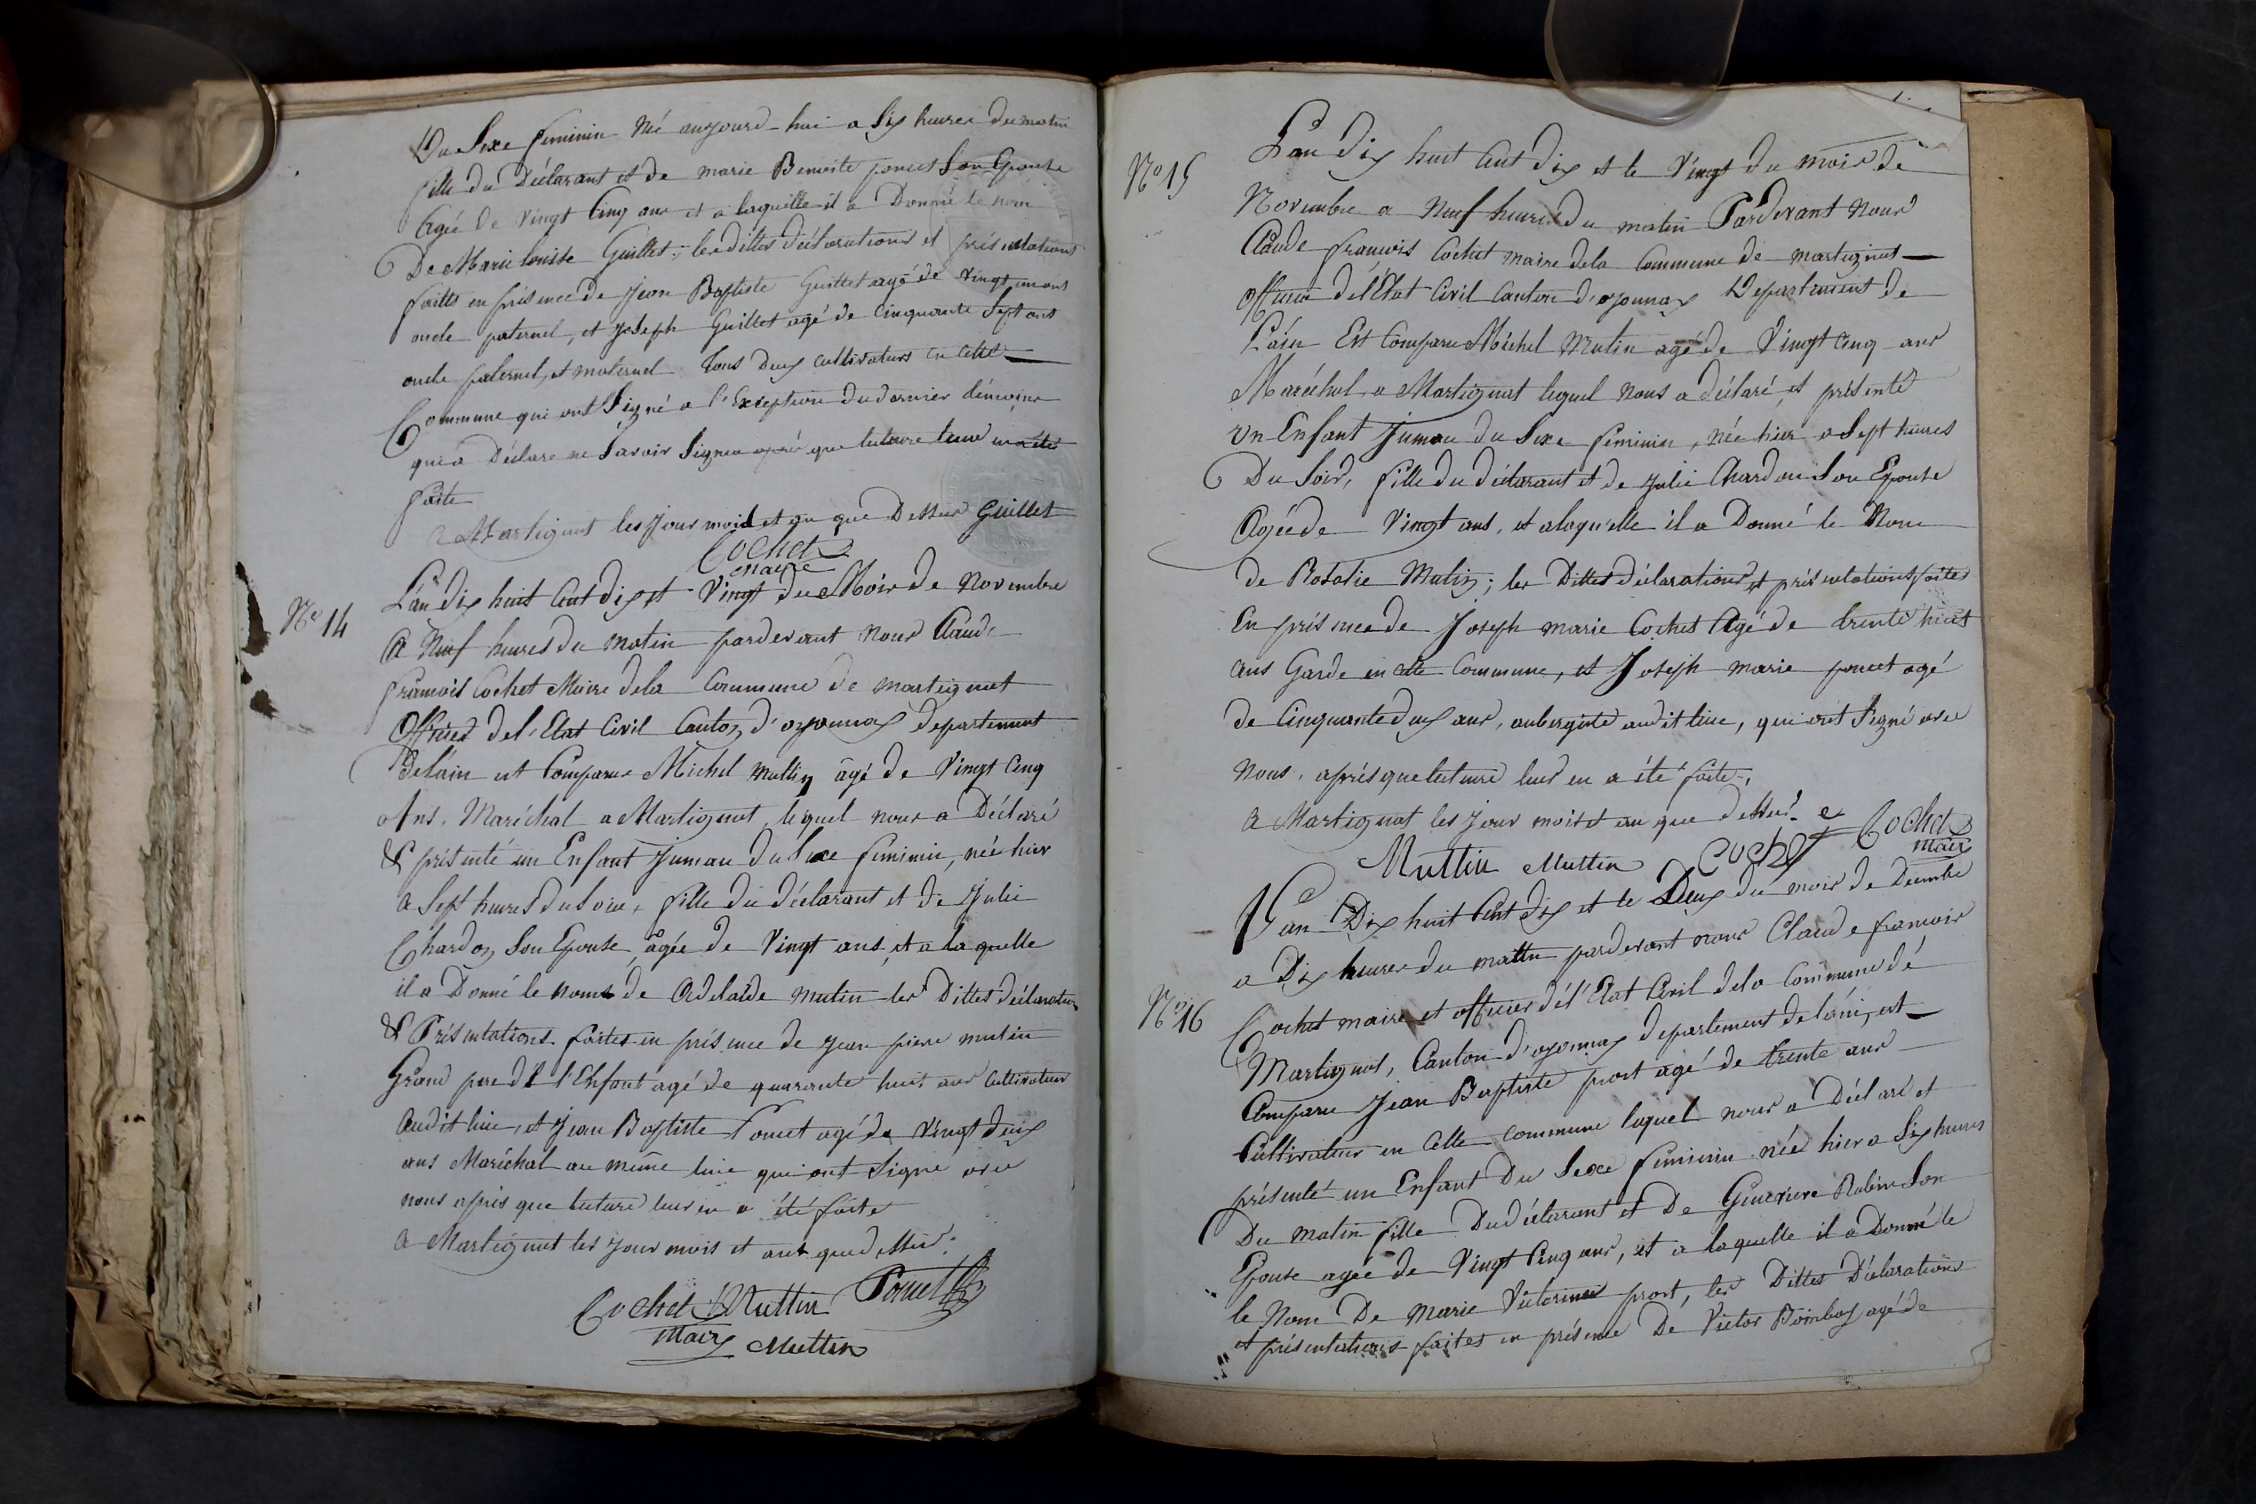 Du Sexe feminin Né aujourd-hui a Six heures du matin
fille du Déclarant et de marie Benoite poncet Son Epouse
Agée de Vingt Cinq ans et a laquelle il a Donné le nom
De Marie louise Guillet; les dittes déclarations et présentations
faittes en présence de Jean Baptiste Guillet agé de vingt un ans
oncle paternel, et Joseph Guillet agé de Cinquante Sept ans
oncle paternel, et maternel Tous deux cultivateurs en cette
Commune qui ont Signé a l'Exception du dernier témoins
qui a Déclaré ne Savoir Signer après que lecture leur en a été
faite
a Martignat les Jour mois et an que Dessus Guillet
Cochet
maire
No 14
L'an dix huit Cent dix et Vingt du Mois de Novembre
A Neuf heures du matin pardevant Nous Claude
françois Cochet Maire dela Commune de Martignat
Officier del'Etat Civil Canton d'oyonnax Departement
delain est Comparu Michel Muttin âgé de Vingt Cinq
Ans. Maréchal a Martignat lequel nous a Déclaré
& présenté un Enfant Jumau Du Sexe feminin, née hier
A Sept heures du Soir, fille du déclarant et de Julie
Chardon Son Epouse, âgée de Vingt ans, et a la quelle
il a Donné le nom de Adelaïde mutin les Dittes déclaration
& Présentations faites en présence de Jean piere mutin
Grand pere de l'Enfant agé de quarante huit ans Cultivateur
Audit lieu, et Jean Baptiste Poncet agé de Vingt deux
ans Maréchal au même lieu qui ont Signé avec
nous après que lecture leur en a été faite
A Martignat les Jour mois et ans que dessus.
Cochet Muttin Poncet
Maire Muttin
No 15
L'an dix huit Cent dix et le Vingt du mois de
Novembre a Neuf heures du matin Pardevant Nous
Claude françois Cochet maire dela Commune de martignat
Officier del'Etat Civil Canton d'oyonnax Departement de
L'ain Est Comparu Michel Mutin agé de Vingt Cinq ans
Maréchal a Martignat lequel Nous a déclaré, et présenté
Un Enfant Jumau du Sexe feminin, née hier a Sept heures
Du Soir, fille du déclarant et de Julie Chardon Son Epouse
Agée de Vingt ans, et a laquelle il a Donné le Nom
de Rosalie Mutin; les Dittes déclarations et présentations faites
En présence de Joseph marie Cochet Agé de trente huit
ans Garde en cette Commune, et Joseph marie poncet agé
de Cinquante deux ans, aubergiste audit lieu, qui ont Signé avec
Nous, après que lecture leur en a été faite,
A Martignat les Jour mois et an que dessus.
Cochet
Muttin Muttin Cochet maire
No 16
L'an Dix huit Cent dix et le Deux du mois de Decembre
a Dix heures du matin pardevant nous Claude francois
Cochet maire et officier de l'Etat Civil dela Commune de
Martignat, Canton d'oyonnax departement de lain, est
Comparu Jean Baptiste prost agé de trente ans
Cultivateur en cette commune lequel nous a Déclaré et
présenté un Enfant Du Sexe feminin née hier a Six heures
Du matin fille Du déclarant et De Genevieve Robin Son
Epouse agée de Vingt Cinq ans, et a laquelle il a Donné le
le Nom De Marie Victorine prost, les Dittes Déclarations
et présentations faites en présence De Victor agé de